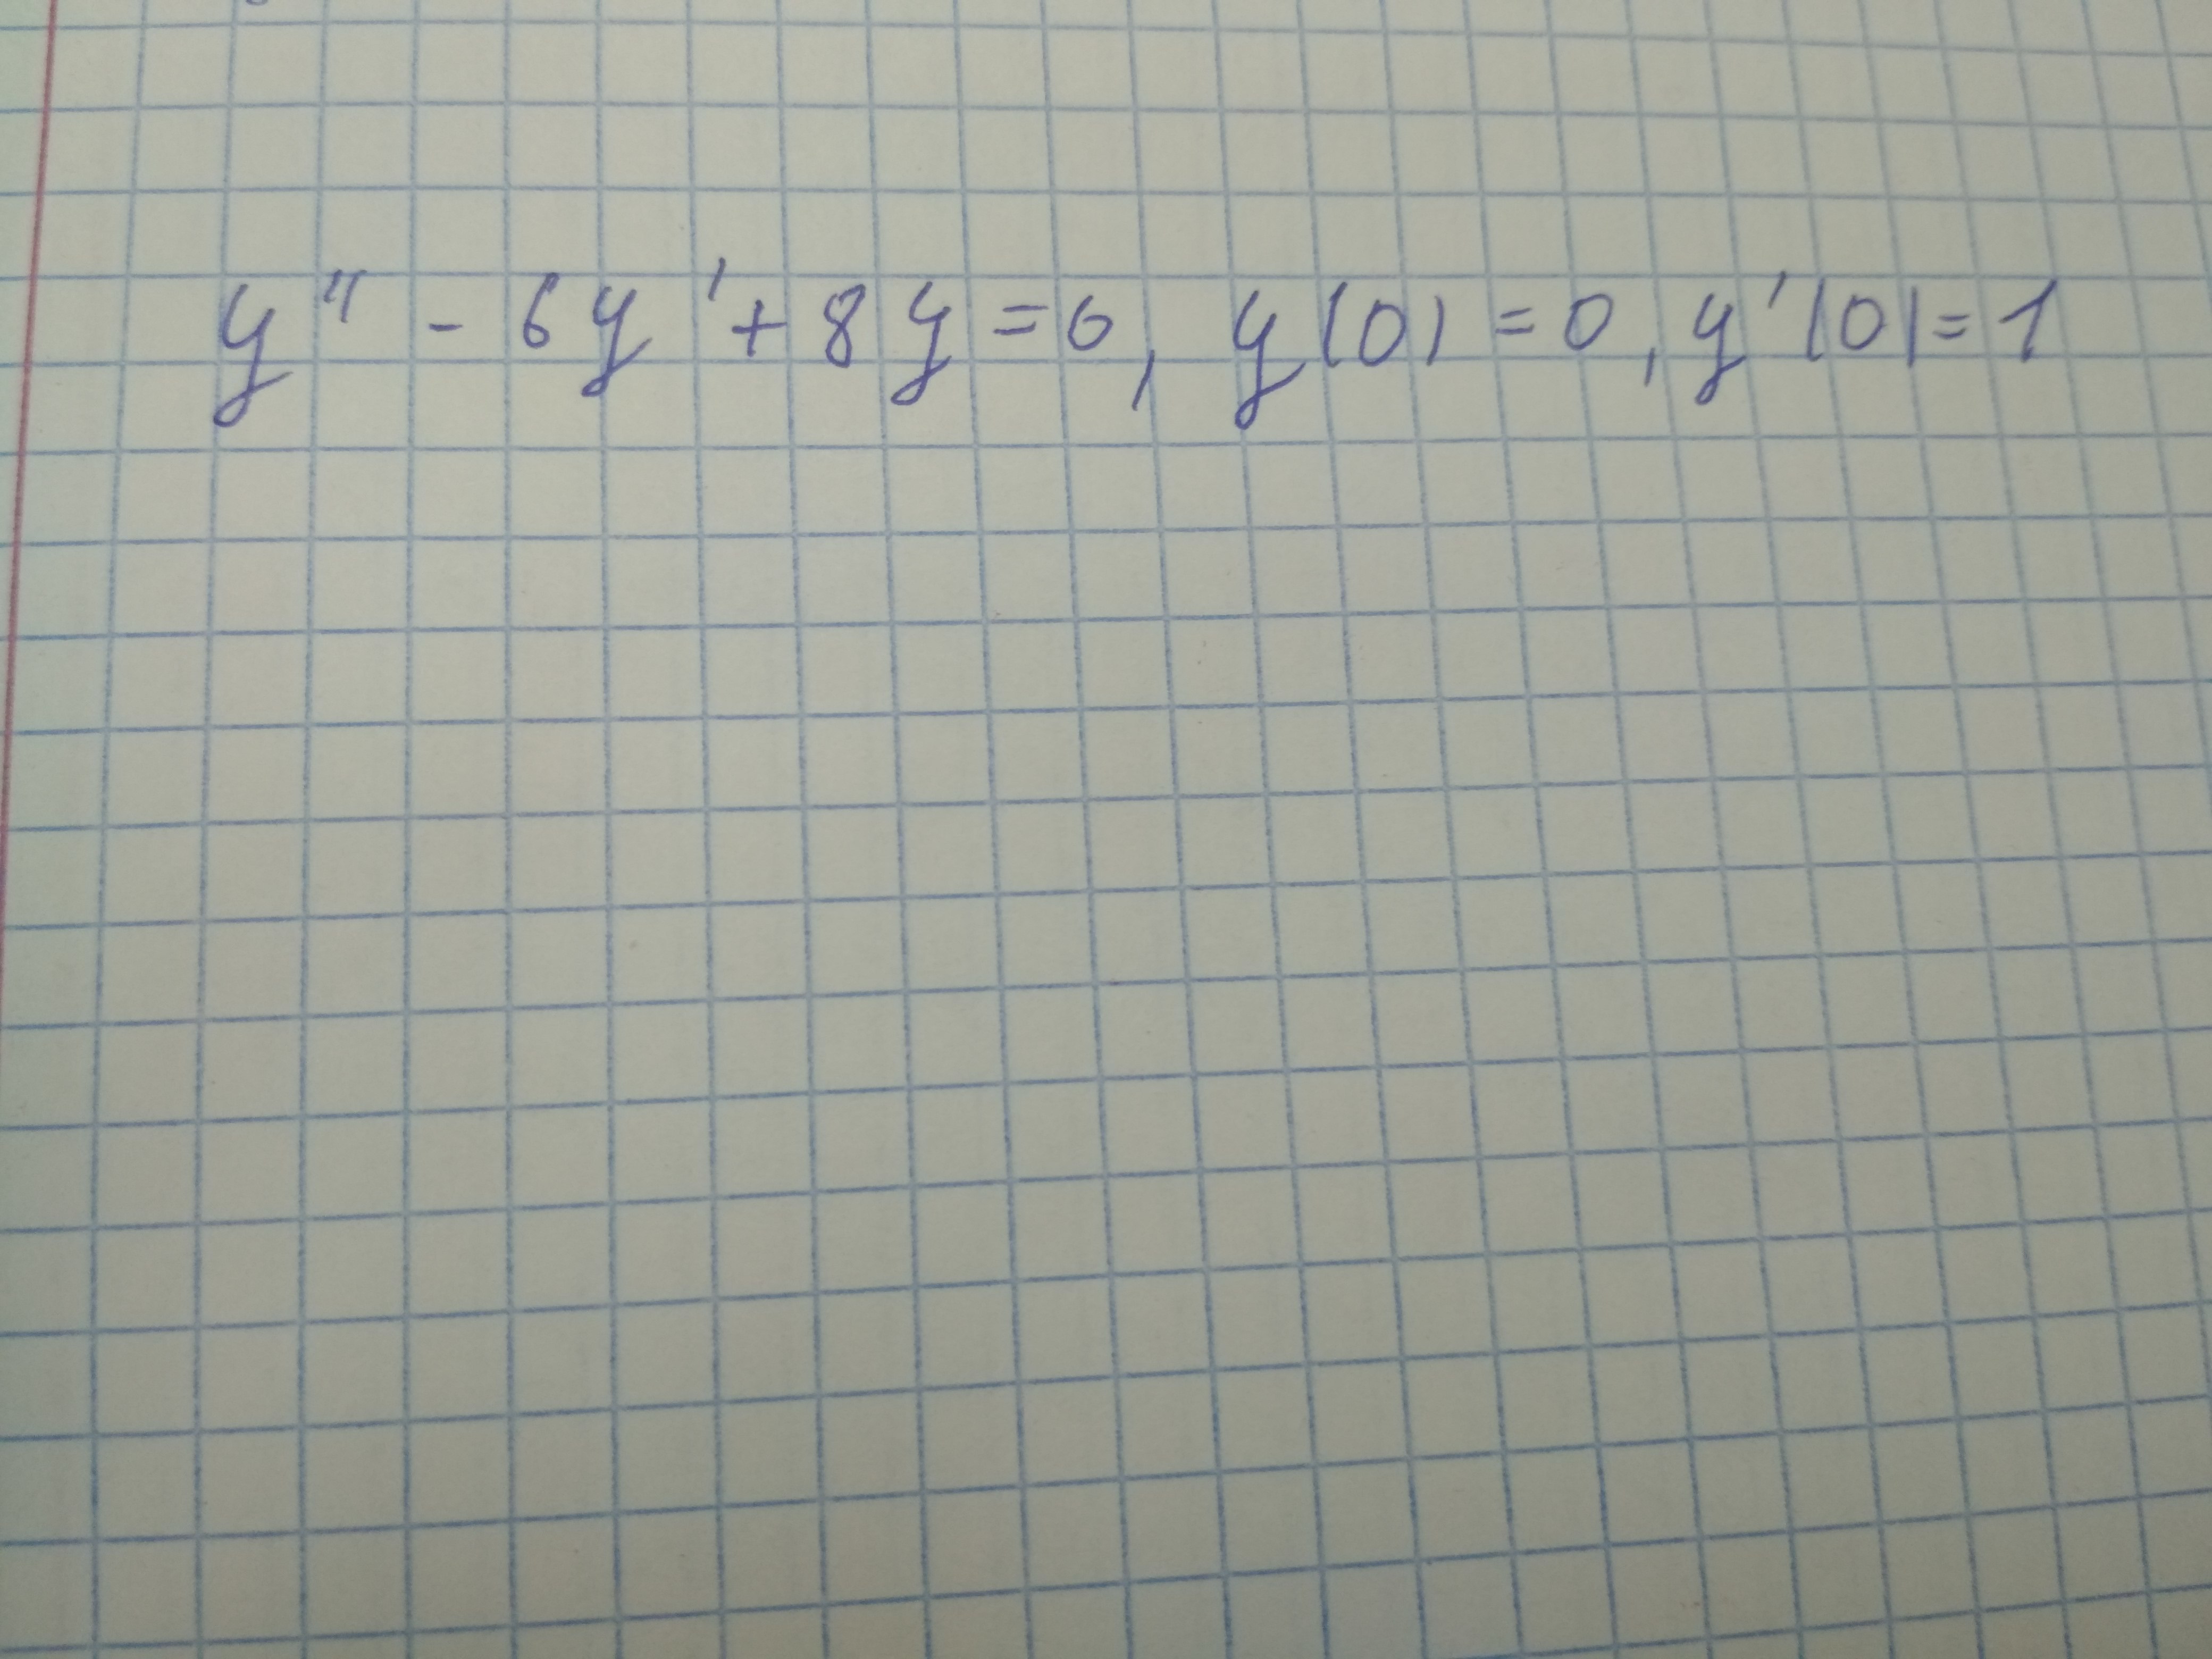 y'' - 6y' + 8y = 0, y(0) = 0, y'(0) = 1